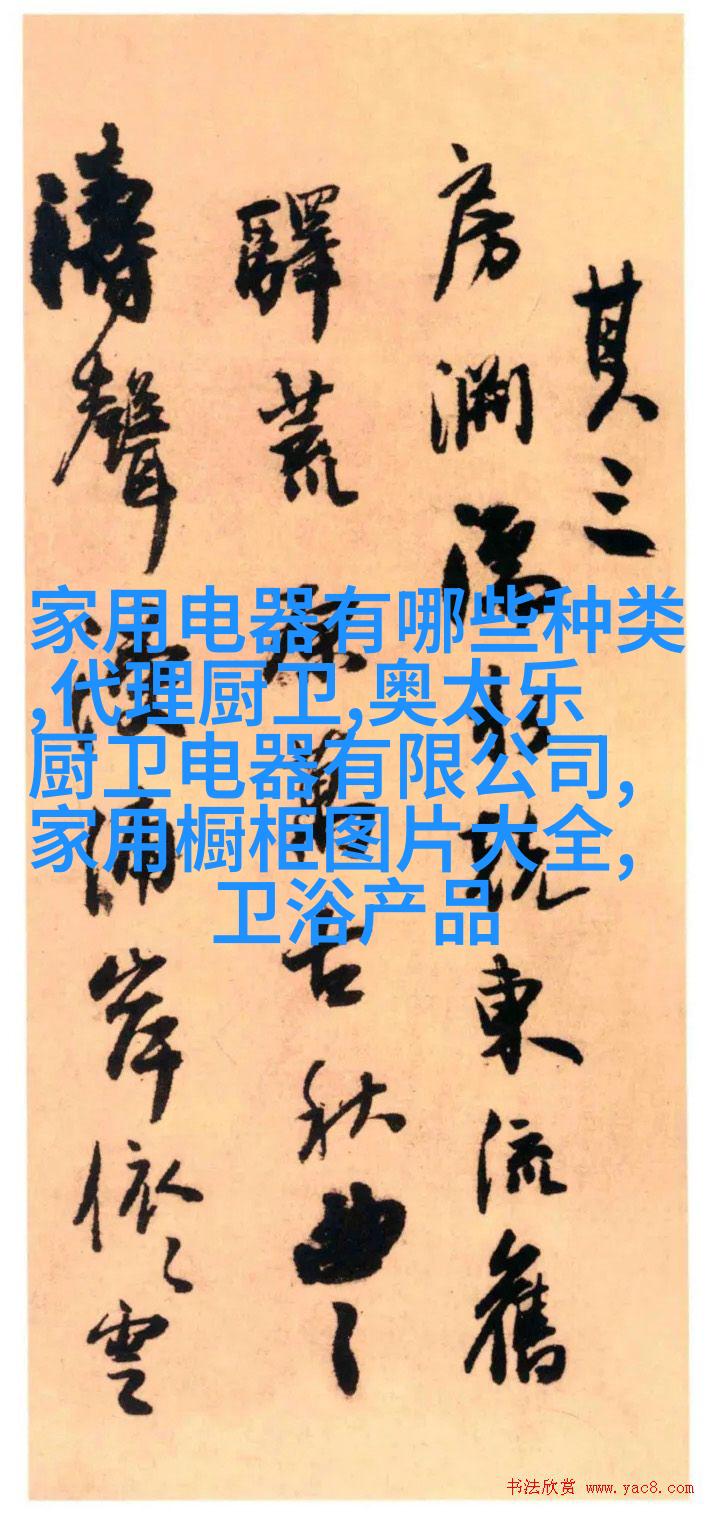 其三
房涧
东流旧
驛荒
古秋曲々
濤聲
岸依々雲
家用电器有哪些种类
,代理厨卫,奥太乐
厨卫电器有限公司,
家用橱柜图片大全,
卫浴产品
书法欣赏 www.yac8.com